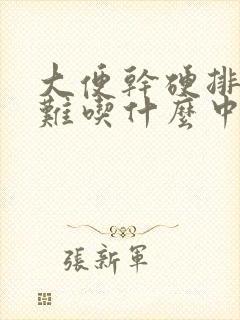 大便幹硬排
難喫什麼中
張新軍